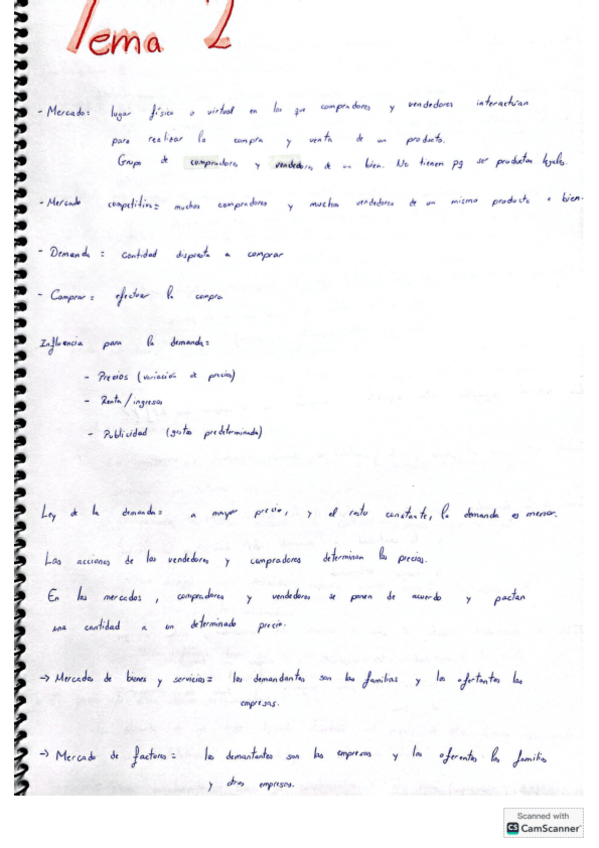 Tema 2
- Mercado: lugar físico o virtual en los que compradores y vendedores interactúan
para realizar la compra y venta de un producto.
Grupo de compradores y vendedores de un bien. No tienen pq ser productos legales.
- Mercado competitivo: muchos compradores y muchos vendedores de un mismo producto o bien.
- Demanda: cantidad dispuesta a comprar
- Comprar: efectuar la compra
Influencia para la demanda:
- Precios (variación de precios)
- Renta/ingresos
- Publicidad (gustos predeterminado)
Ley de la demanda: a mayor precio, y el resto constante, la demanda es menor.
Las acciones de los vendedores y compradores determinan los precios.
En los mercados, compradores y vendedores se ponen de acuerdo y pactan
una cantidad a un determinado precio.
→ Mercados de bienes y servicios = los demandantes son las familias y los ofertantes las
empresas.
→ Mercado de factores = los demantantes son las empresas y los oferentes las familias
y otras empresas.
Scanned with
CS CamScanner